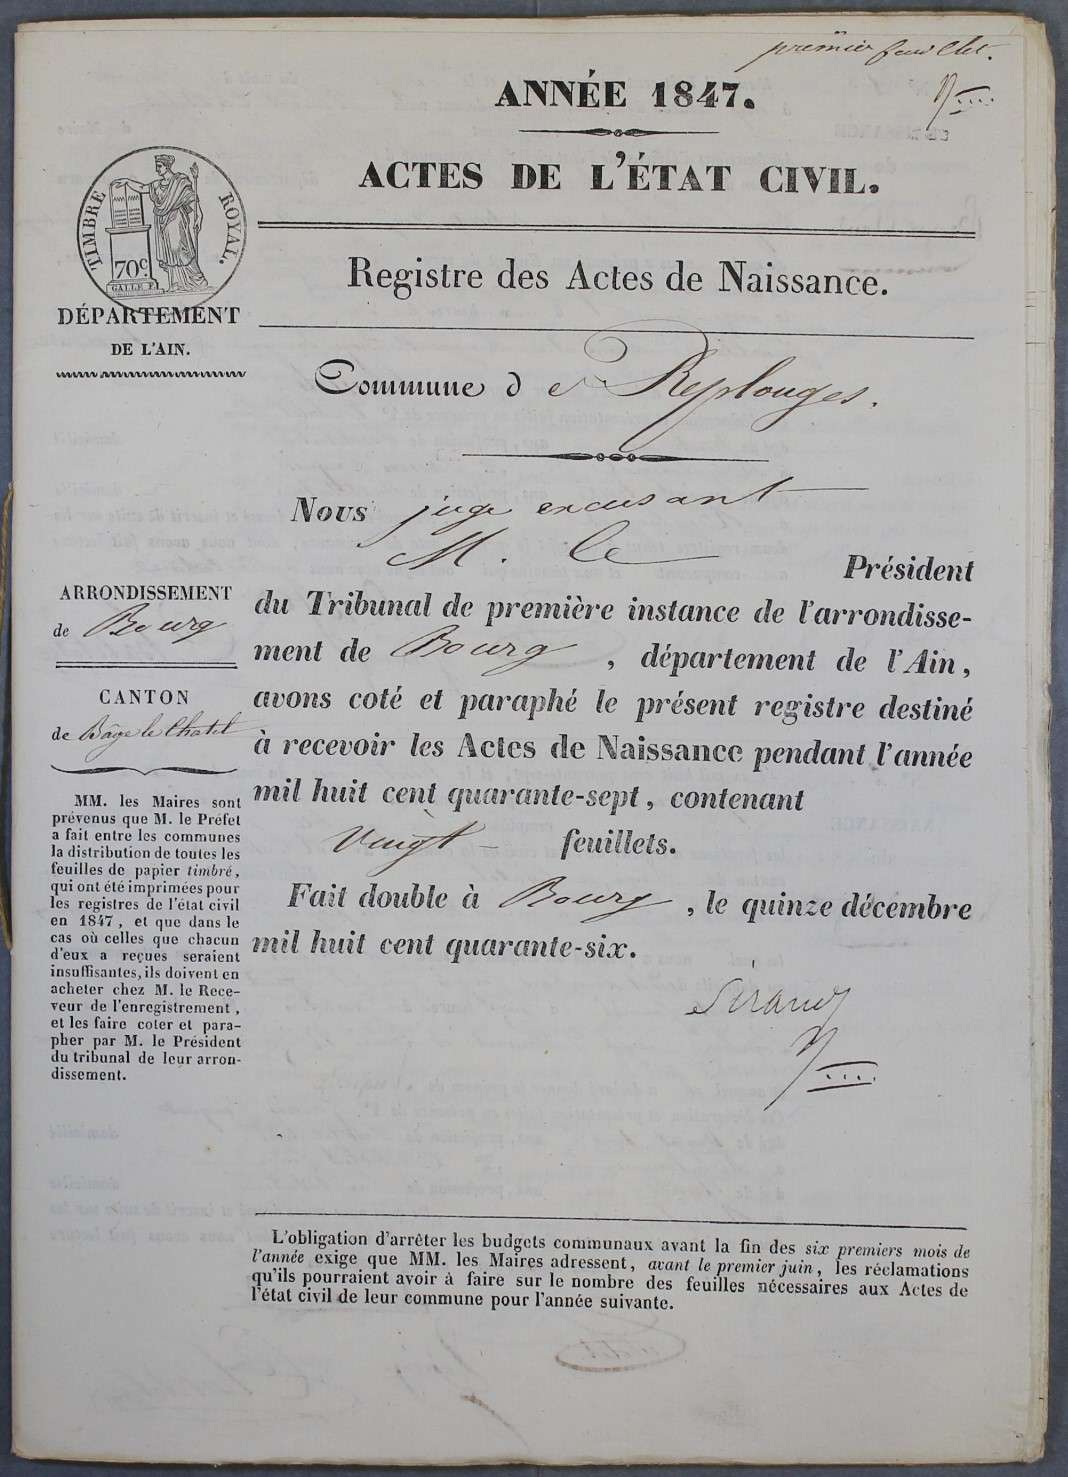 premier feuillet.
ANNÉE 1847.
ACTES DE L'ÉTAT CIVIL.
TIMBRE ROYAL.
70c
GALLE F.
DÉPARTEMENT
DE L'AIN.
Registre des Actes de Naissance.
Commune de Replonges.
Nous juge excusant
M. le Président
du Tribunal de première instance de l'arrondisse-
ment de Bourg, département de l'Ain,
avons coté et paraphé le présent registre destiné
à recevoir les Actes de Naissance pendant l'année
mil huit cent quarante-sept, contenant
vingt feuillets.
Fait double à Bourg, le quinze décembre
mil huit cent quarante-six.
ARRONDISSEMENT
de Bourg
CANTON
de Bâgé le Chatel
MM. les Maires sont
prévenus que M. le Préfet
a fait entre les communes
la distribution de toutes les
feuilles de papier timbré,
qui ont été imprimées pour
les registres de l'état civil
en 1847, et que dans le
cas où celles que chacun
d'eux a reçues seraient
insuffisantes, ils doivent en
acheter chez M. le Rece-
veur de l'enregistrement,
et les faire coter et para-
pher par M. le Président
du tribunal de leur arron-
dissement.
L'obligation d'arrêter les budgets communaux avant la fin des six premiers mois de
l'année exige que MM. les Maires adressent, avant le premier juin, les réclamations
qu'ils pourraient avoir à faire sur le nombre des feuilles nécessaires aux Actes de
l'état civil de leur commune pour l'année suivante.